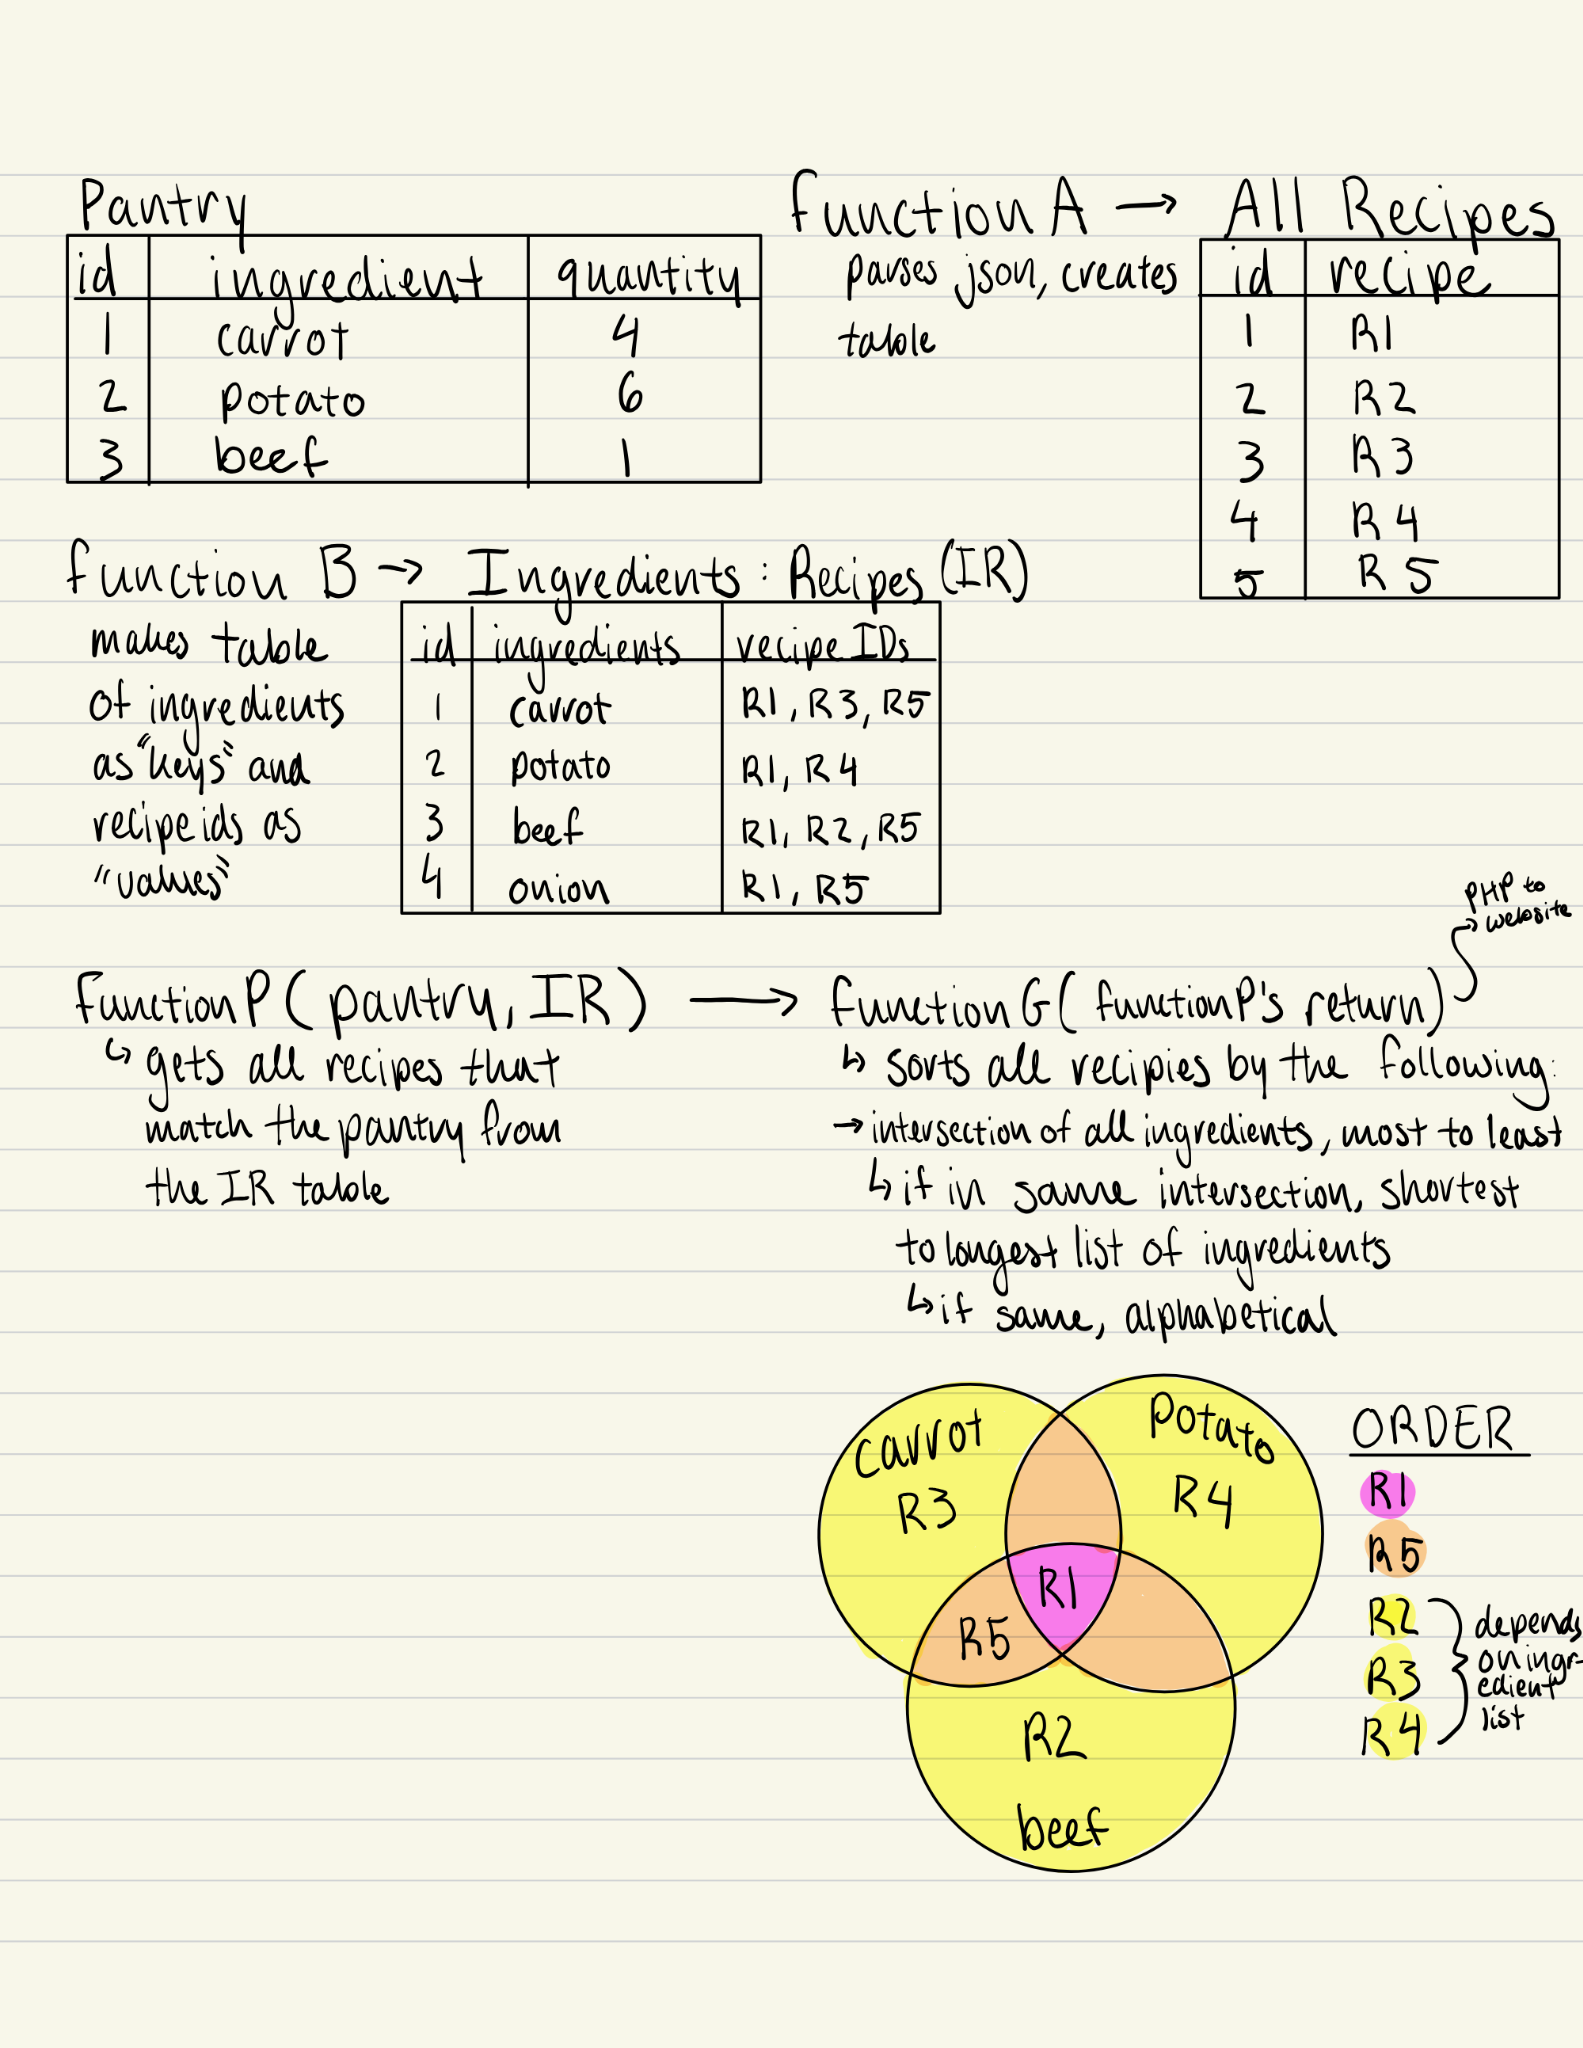 Pantry
id ingredient quantity
1 carrot 4
2 potato 6
3 beef 1
function A → All Recipes
parses json, creates
table
id recipe
1 R1
2 R2
3 R3
4 R4
5 R5
function B → Ingredients : Recipes (IR)
makes table
of ingredients
as "keys" and
recipeids as
"values"
id ingredients recipe IDs
1 carrot R1, R3, R5
2 potato R1, R4
3 beef R1, R2, R5
4 onion R1, R5
PHP to
website
functionP(pantry, IR) → functionG(functionP's return)
↳ gets all recipes that
match the pantry from
the IR table
↳ sorts all recipies by the following:
→ intersection of all ingredients, most to least
↳ if in same intersection, shortest
to longest list of ingredients
↳ if same, alphabetical
carrot
R3
Potato
R4
R1
R5
R2
beef
ORDER
R1
R5
R2
R3
R4
depends
on ingr-
edient
list